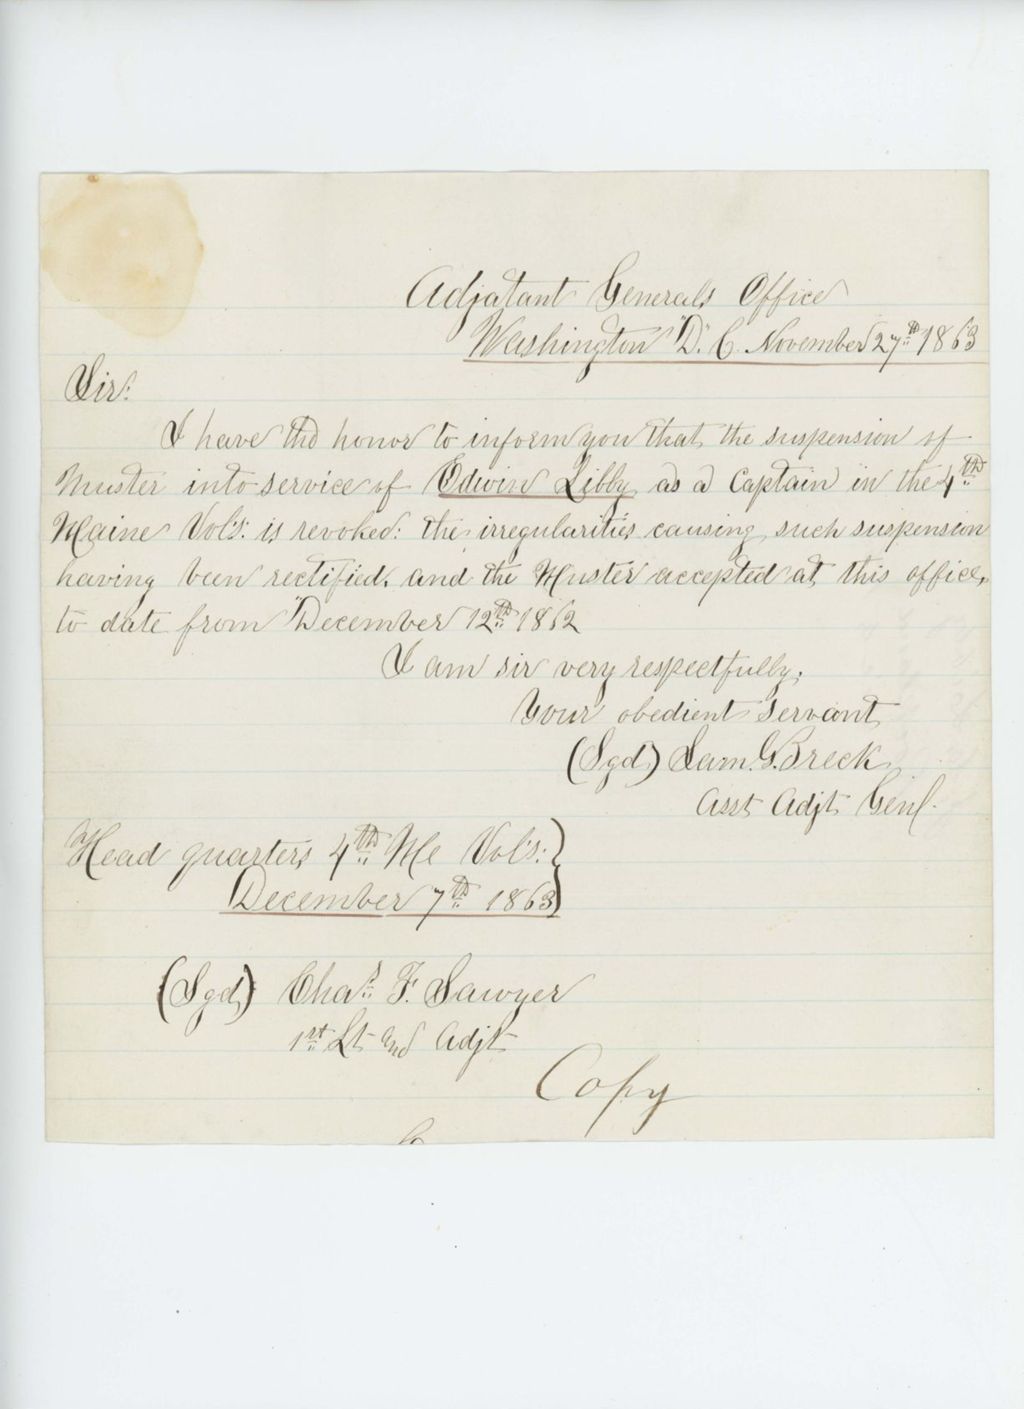 Adjatant Generals Office
Washington D. C. November 27th 1863
Sir:
I have the honor to inform you that the suspension of
Muster into service of Edwin Libby as a Captain in the 4th
Maine Vol's: is revoked: the irregularities causing such suspension
having been rectified, and the Muster accepted at this office,
to date from December 12th 1862
I am sir very respectfully,
Your obedient servant
(Sgd) Sam. G. Breck
Asst Adjt Genl.
Head quarters 4th Me Vol's: }
December 7th 1863 }
(Sgd) Chas F. Sawyer
1st Lt and Adjt
Copy